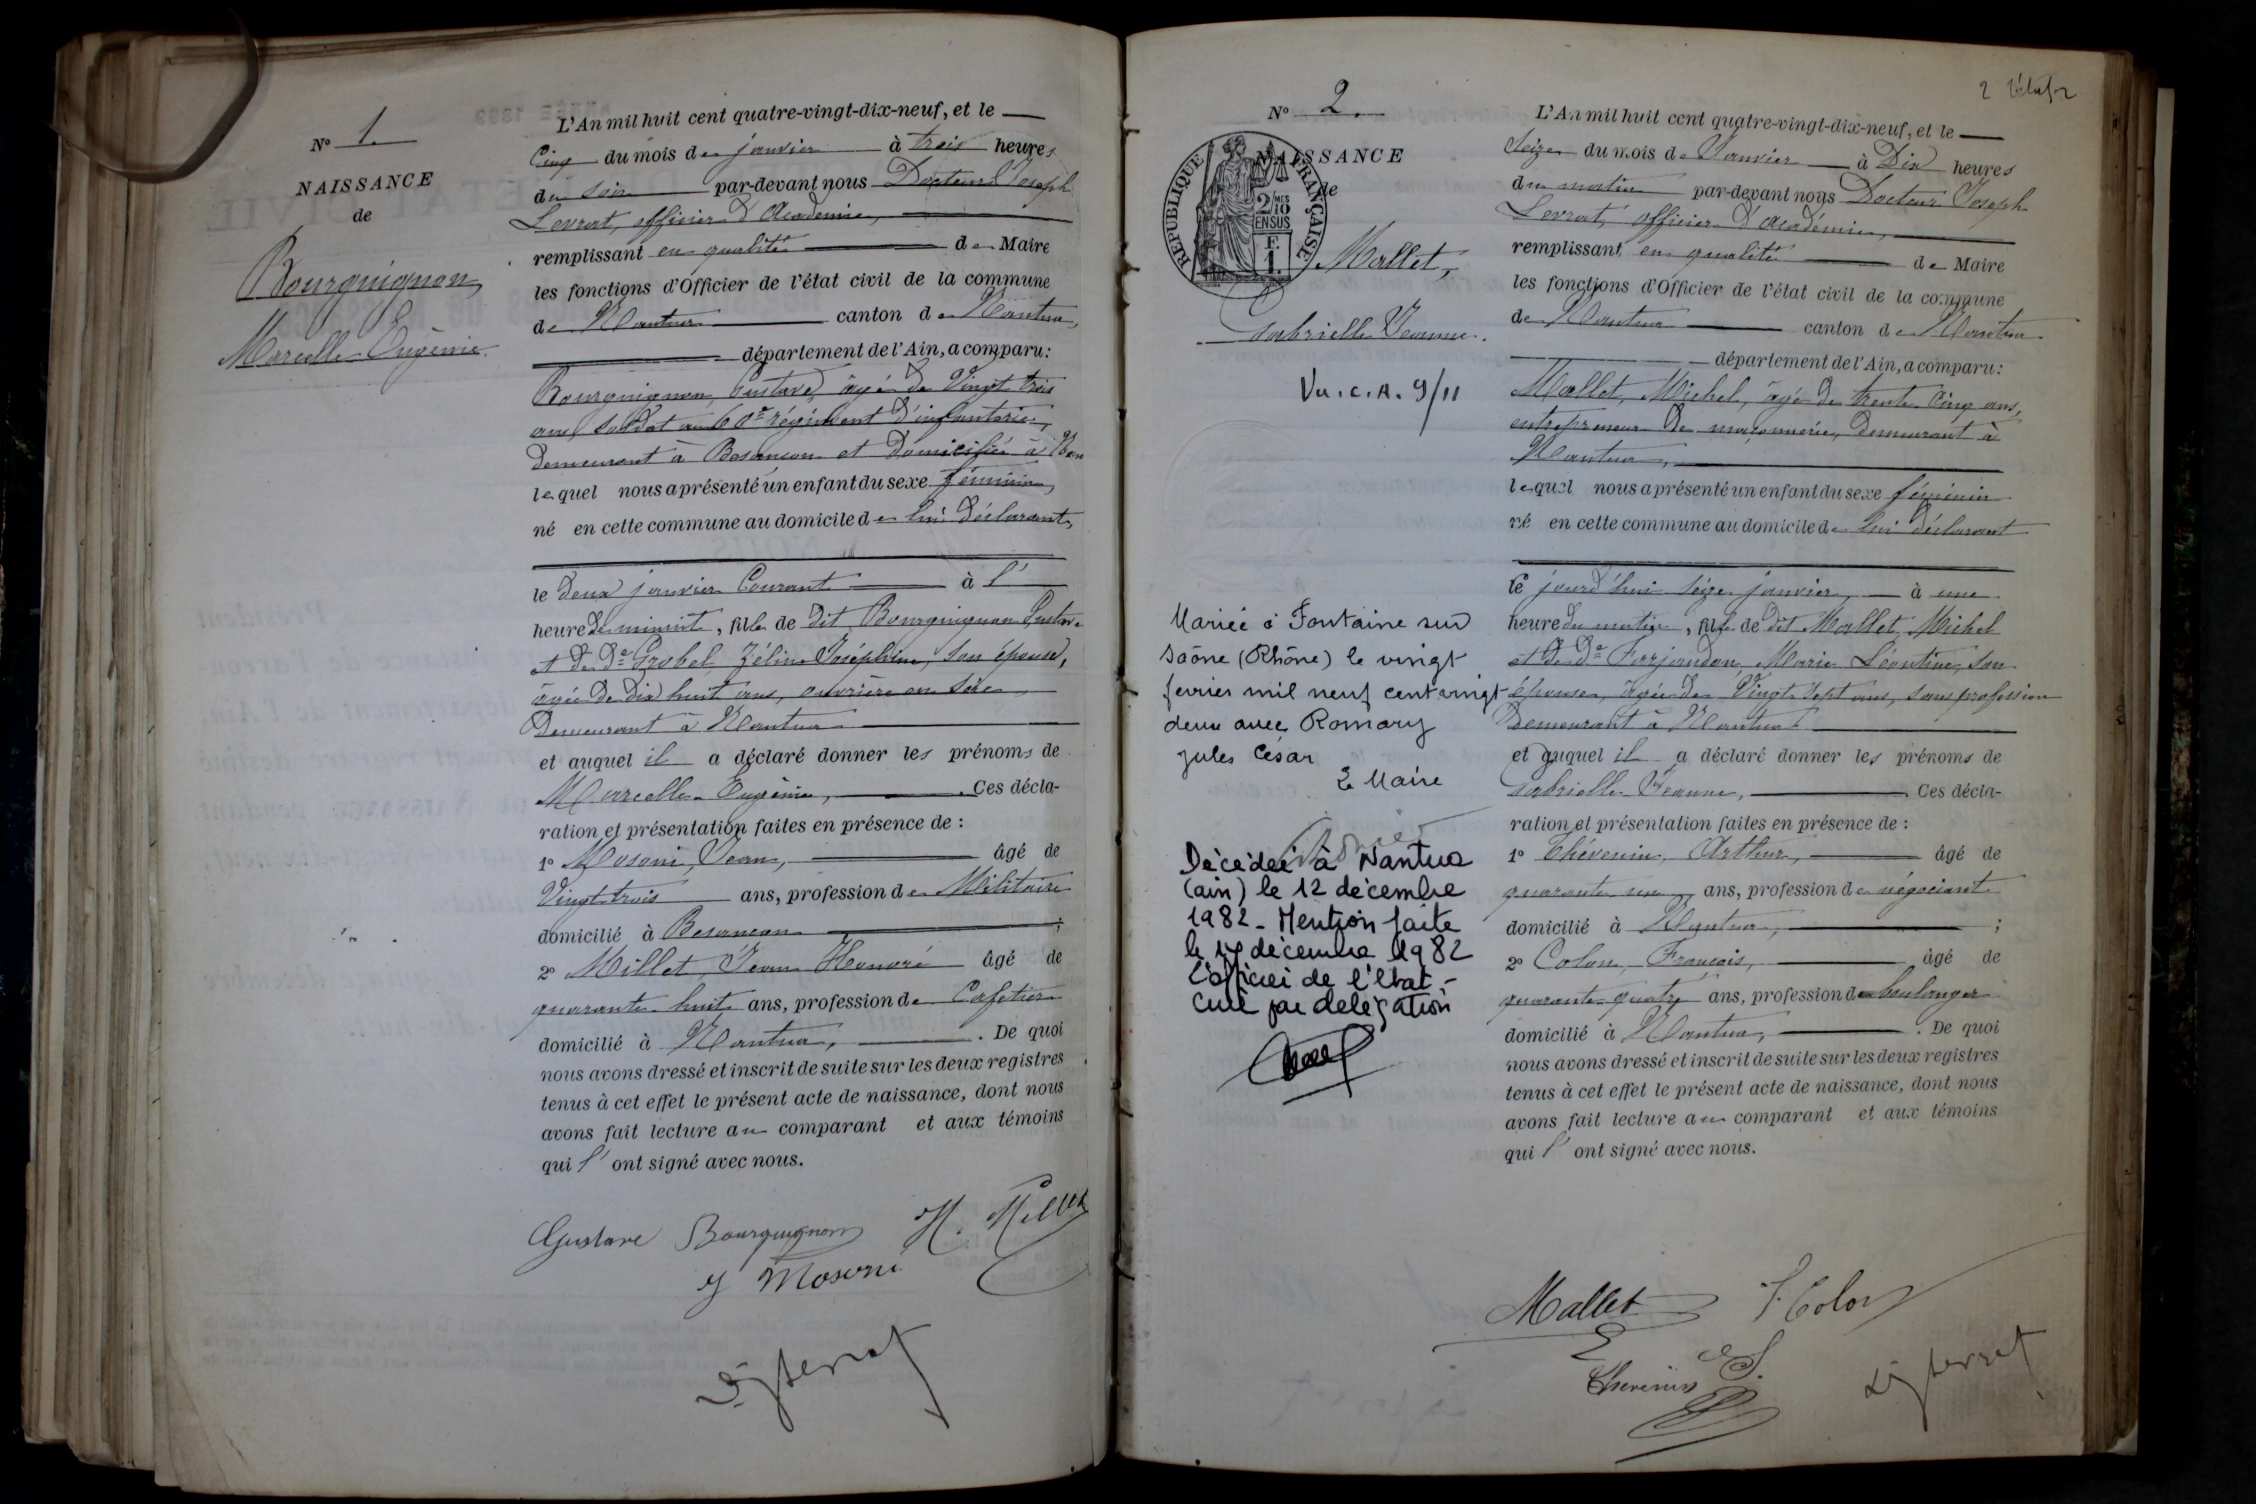 N° 1.
NAISSANCE
de
Bourguignon
Marcelle Eugénie.
L'An mil huit cent quatre-vingt-dix-neuf, et le
Cinq du mois de janvier à trois heures
du soir par-devant nous Docteur Joseph
Levrat, officier d'Académie,
remplissant en qualité de Maire
les fonctions d'Officier de l'état civil de la commune
de Nantua canton de Nantua,
département de l'Ain, a comparu:
Bourguignon, Gustave, âgé de Vingt trois
ans, soldat au 60e régiment d'infanterie,
demeurant à Besançon et domicilié à
lequel nous a présenté un enfant du sexe féminin,
né en cette commune au domicile de lui déclarant,
le deux janvier Courant à l'
heure de minuit, fille de dit Bourguignon Gustave
et de De Grobel Zéline Joséphine, son épouse,
âgée de dix huit ans, ouvrière en soie
Demeurant à Nantua
et auquel il a déclaré donner les prénoms de
Marcelle Eugénie, Ces décla-
ration et présentation faites en présence de :
1° Mosoni, Jean, âgé de
Vingt trois ans, profession de Militaire
domicilié à Besançon ;
2° Millet, Jean Honoré âgé de
quarante huit ans, profession de Cafetier
domicilié à Nantua, . De quoi
nous avons dressé et inscrit de suite sur les deux registres
tenus à cet effet le présent acte de naissance, dont nous
avons fait lecture au comparant et aux témoins
qui l'ont signé avec nous.
Gustave Bourguignon H. Millet
J Mosoni
2
N° 2.
NAISSANCE
de
RÉPUBLIQUE FRANÇAISE
2 MES
10
EN SUS
F.
1.
Mallet,
Gabrielle Jeanne.
Vu. C. A. 9/11
Mariée à Fontaine sur
Saône (Rhône) le vingt
fevrier mil neuf cent vingt
deux avec Romary
Jules César
Le Maire
Décédée à Nantua
(ain) le 12 décembre
1982 - Mention faite
le 17 décembre 1982
L'officier de l'Etat-
Civil par délégation
L'An mil huit cent quatre-vingt-dix-neuf, et le
Seize du mois de Janvier à Dix heures
du matin par-devant nous Docteur Joseph
Levrat, officier d'Académie,
remplissant en qualité de Maire
les fonctions d'Officier de l'état civil de la commune
de Nantua canton de Nantua
département de l'Ain, a comparu:
Mallet, Michel, âgé de trente cinq ans,
entrepreneur de maçonnerie, demeurant à
Nantua,
lequel nous a présenté un enfant du sexe féminin
né en cette commune au domicile de lui déclarant
ce jourd'hui seize janvier, à une
heure du matin, fille de dit Mallet, Michel
et de De Farjaudon, Marie Léontine, son
épouse, âgée de Vingt sept ans, sans profession
Demeurant à Nantua
et auquel il a déclaré donner les prénoms de
Gabrielle Jeanne, Ces décla-
ration et présentation faites en présence de :
1° Thévenin, Arthur, âgé de
quarante un ans, profession de négociant
domicilié à Nantua, ;
2° Colon, François, âgé de
quarante quatre ans, profession de boulanger
domicilié à Nantua, . De quoi
nous avons dressé et inscrit de suite sur les deux registres
tenus à cet effet le présent acte de naissance, dont nous
avons fait lecture au comparant et aux témoins
qui l'ont signé avec nous.
Mallet F. Colon
Thevenin